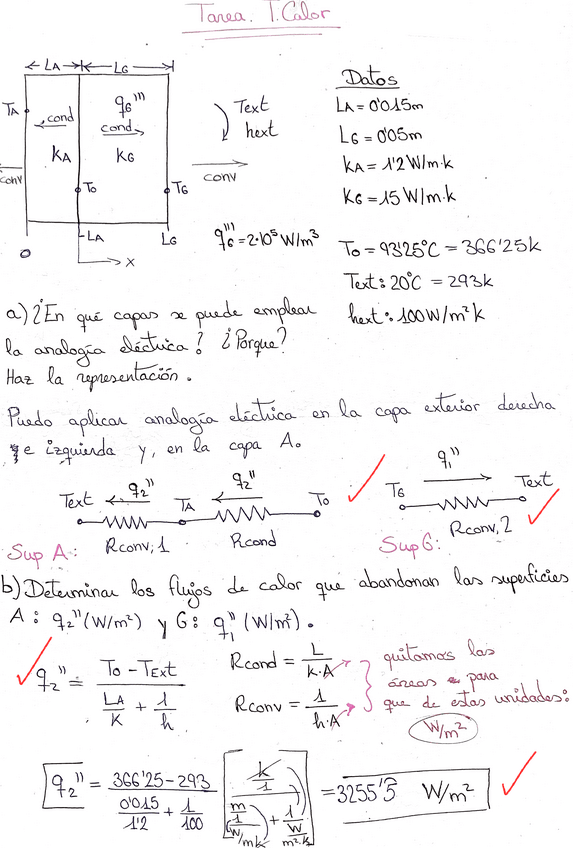 Tarea. T.Calor
LA LG
TA
cond
qG'''
cond
KA KG
conv
T0 TG
0 -LA LG
x
Text
hext
conv
qG''' = 2·10⁵ W/m³
Datos
LA = 0'015m
LG = 0'05m
kA = 1'2 W/m·k
KG = 15 W/m·k
T0 = 93'25°C = 366'25k
Text: 20°C = 293k
hext: 100 W/m²K
a) ¿En qué capas se puede emplear
la analogía eléctrica? ¿Porque?
Haz la representación.
Puedo aplicar analogía eléctrica en la capa exterior derecha
e izquierda y, en la capa A.
Text q2'' TA q2'' T0
Rconv,1 Rcond
Sup A:
q1''
TG Text
Rconv,2
Sup G:
b) Determinar los flujos de calor que abandonan las superficies
A: q2'' (W/m²) y G: q1'' (W/m²).
q2'' = (T0 - TExt) / (LA/K + 1/h)
Rcond = L / k·A
Rconv = 1 / h·A
quitamos las
áreas para
que de estas unidades:
W/m²
q2'' = (366'25 - 293) / (0'015/1'2 + 1/100) [ (k/1) / ((m/1)/(W/mk) + 1/(W/m²·k)) ] = 3255'5 W/m²